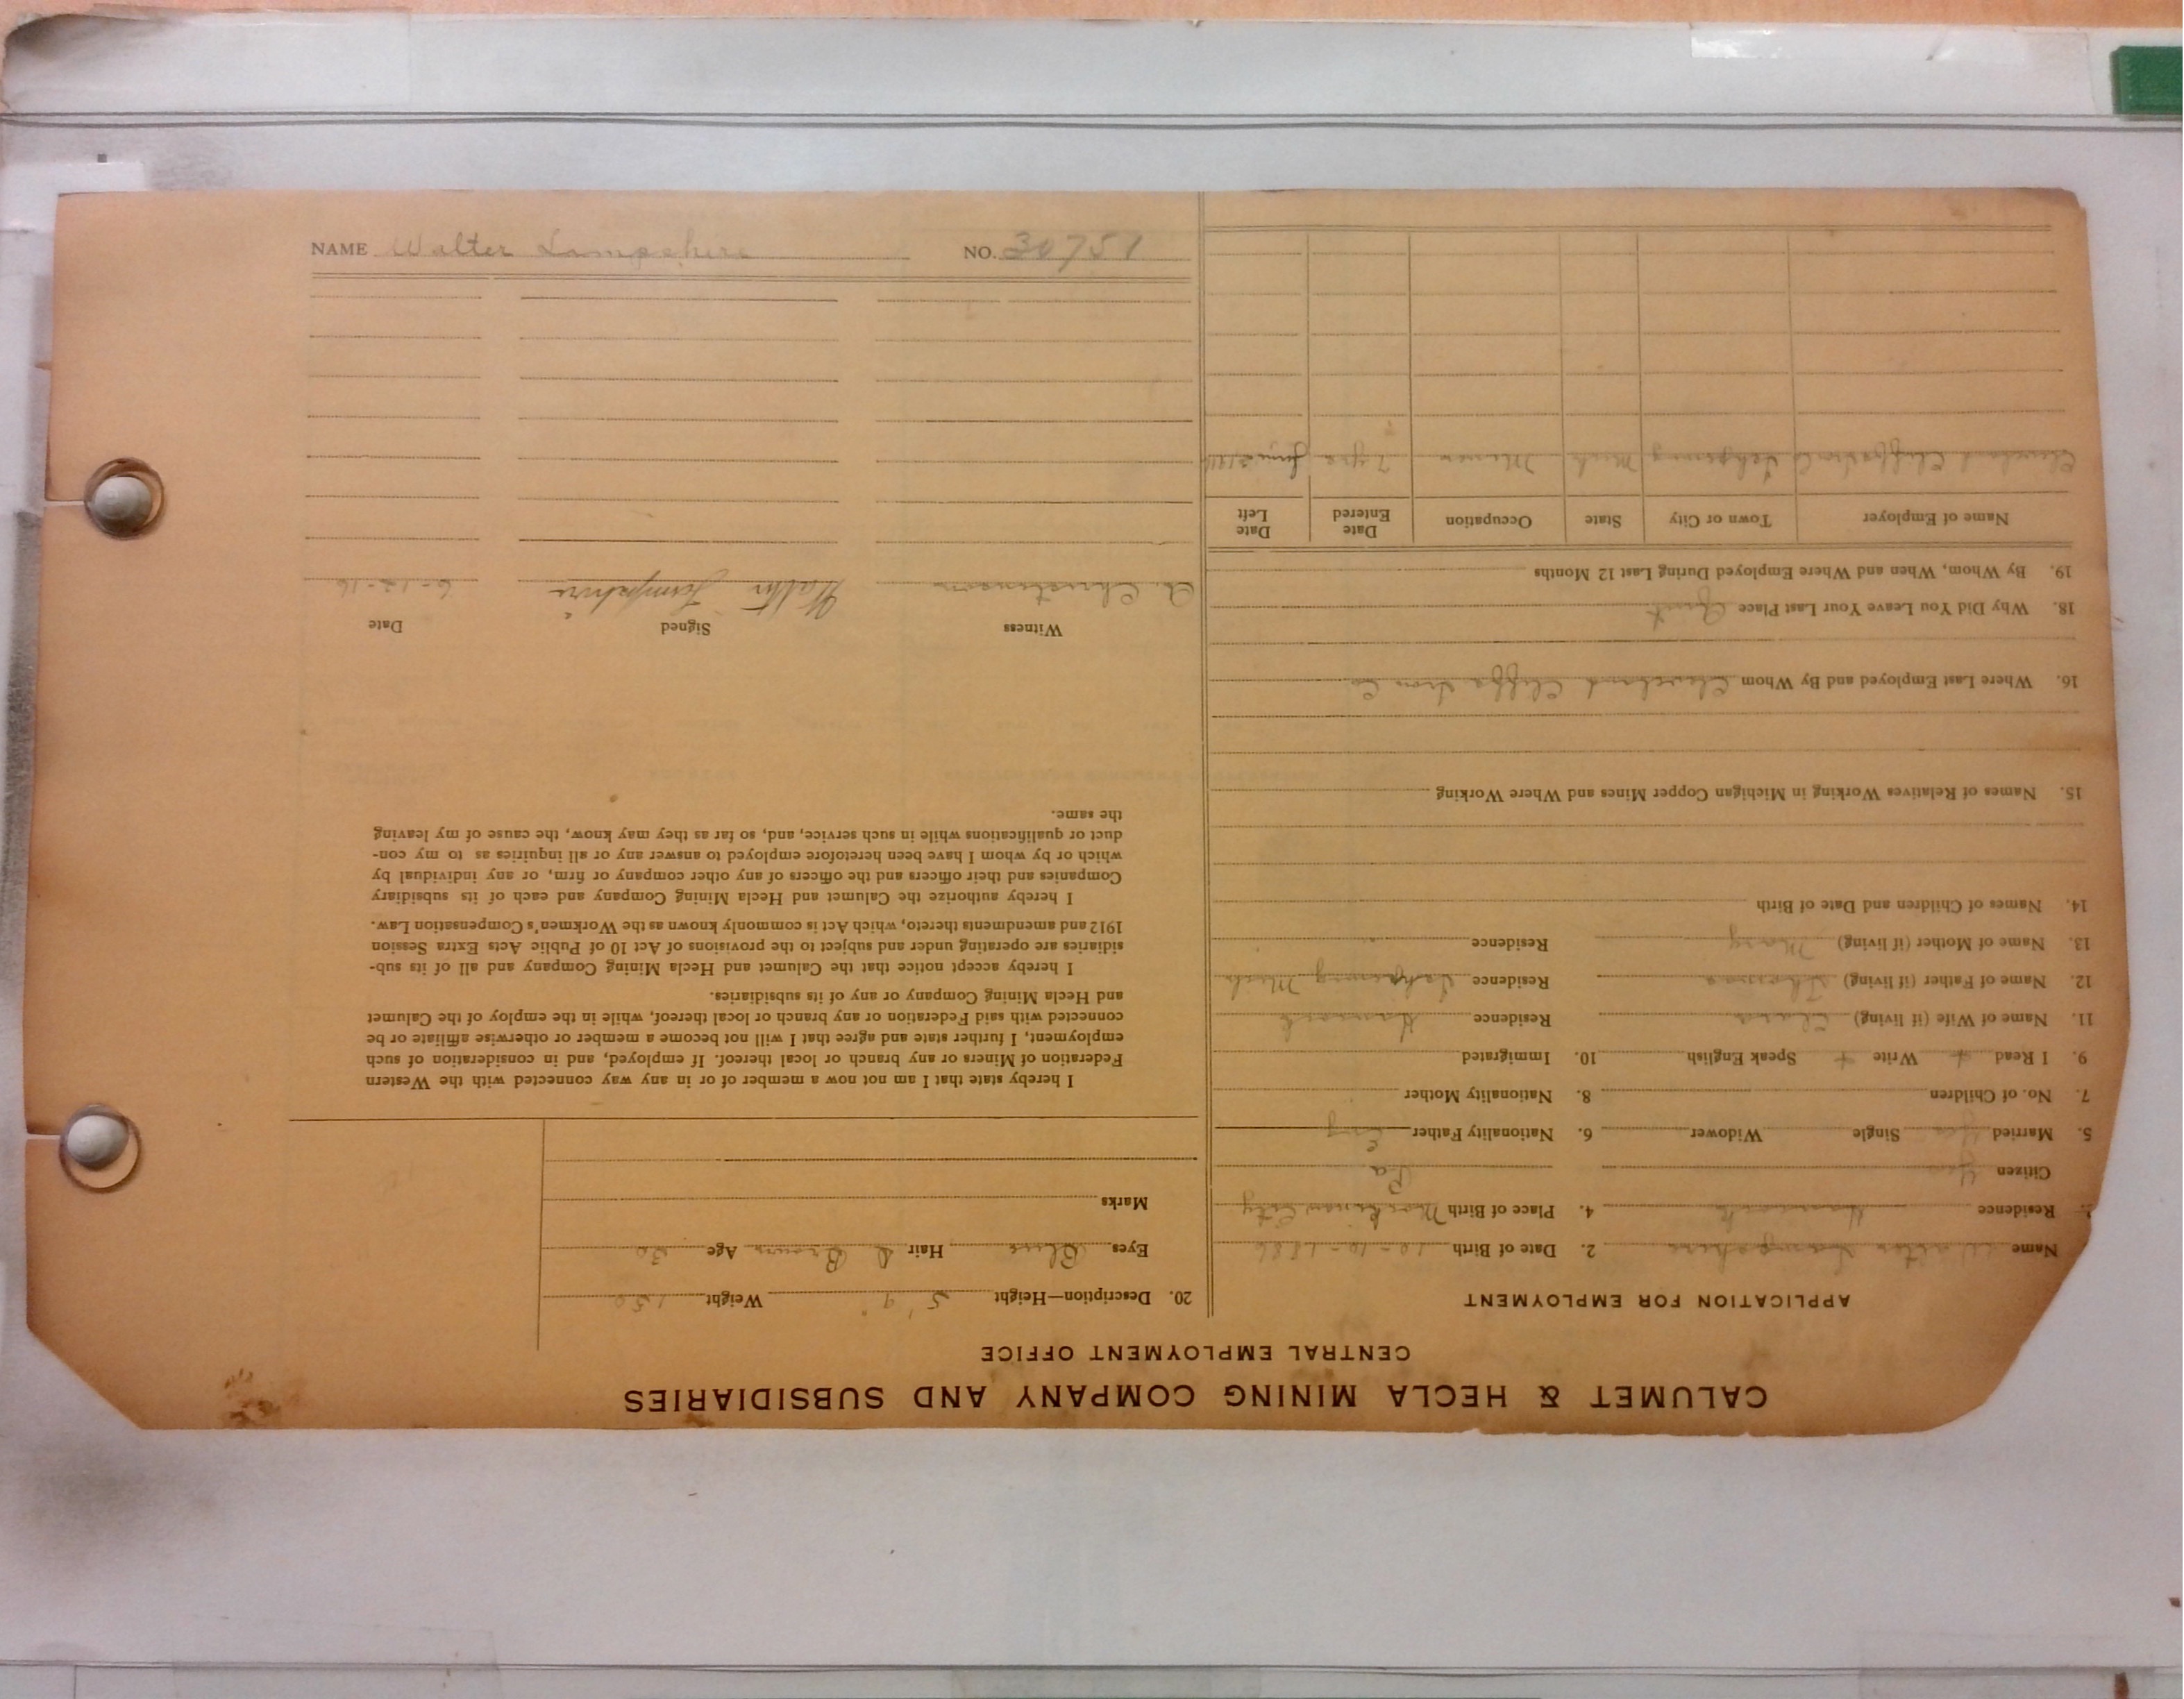 CALUMET & HECLA MINING COMPANY AND SUBSIDIARIES
CENTRAL EMPLOYMENT OFFICE
APPLICATION FOR EMPLOYMENT
Name Walter Lampshire 2. Date of Birth 10-10-1886
Residence Hancock 4. Place of Birth City
Citizen Yes Pa
5. Married Yes Single Widower 6. Nationality Father Eng
7. No. of Children 8. Nationality Mother
9. I Read + Write + Speak English 10. Immigrated
11. Name of Wife (if living) Clara Residence Hancock
12. Name of Father (if living) Thomas Residence Ishpeming Mich
13. Name of Mother (if living) Mary Residence
14. Names of Children and Date of Birth
15. Names of Relatives Working in Michigan Copper Mines and Where Working
16. Where Last Employed and By Whom Cleveland Cliffs Iron Co
18. Why Did You Leave Your Last Place Quit
19. By Whom, When and Where Employed During Last 12 Months
Name of Employer Town or City State Occupation Date Entered Date Left
Cleveland Cliffs Iron Co Ishpeming Mich Miner 7 yrs June
20. Description—Height 5' 9" Weight 150
Eyes Blue Hair D Brown Age 30
Marks
I hereby state that I am not now a member of or in any way connected with the Western
Federation of Miners or any branch or local thereof. If employed, and in consideration of such
employment, I further state and agree that I will not become a member or otherwise affiliate or be
connected with said Federation or any branch or local thereof, while in the employ of the Calumet
and Hecla Mining Company or any of its subsidiaries.
I hereby accept notice that the Calumet and Hecla Mining Company and all of its sub-
sidiaries are operating under and subject to the provisions of Act 10 of Public Acts Extra Session
1912 and amendments thereto, which Act is commonly known as the Workmen's Compensation Law.
I hereby authorize the Calumet and Hecla Mining Company and each of its subsidiary
Companies and their officers and the officers of any other company or firm, or any individual by
which or by whom I have been heretofore employed to answer any or all inquiries as to my con-
duct or qualifications while in such service, and, so far as they may know, the cause of my leaving
the same.
Witness Signed Date
A. Christenson Walter Lampshire 6-12-16
NAME Walter Lampshire NO. 30751